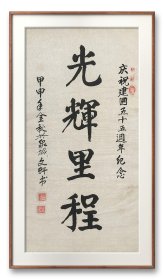 庆祝建国五十五週年纪念
光輝里程
甲申年金秋
书